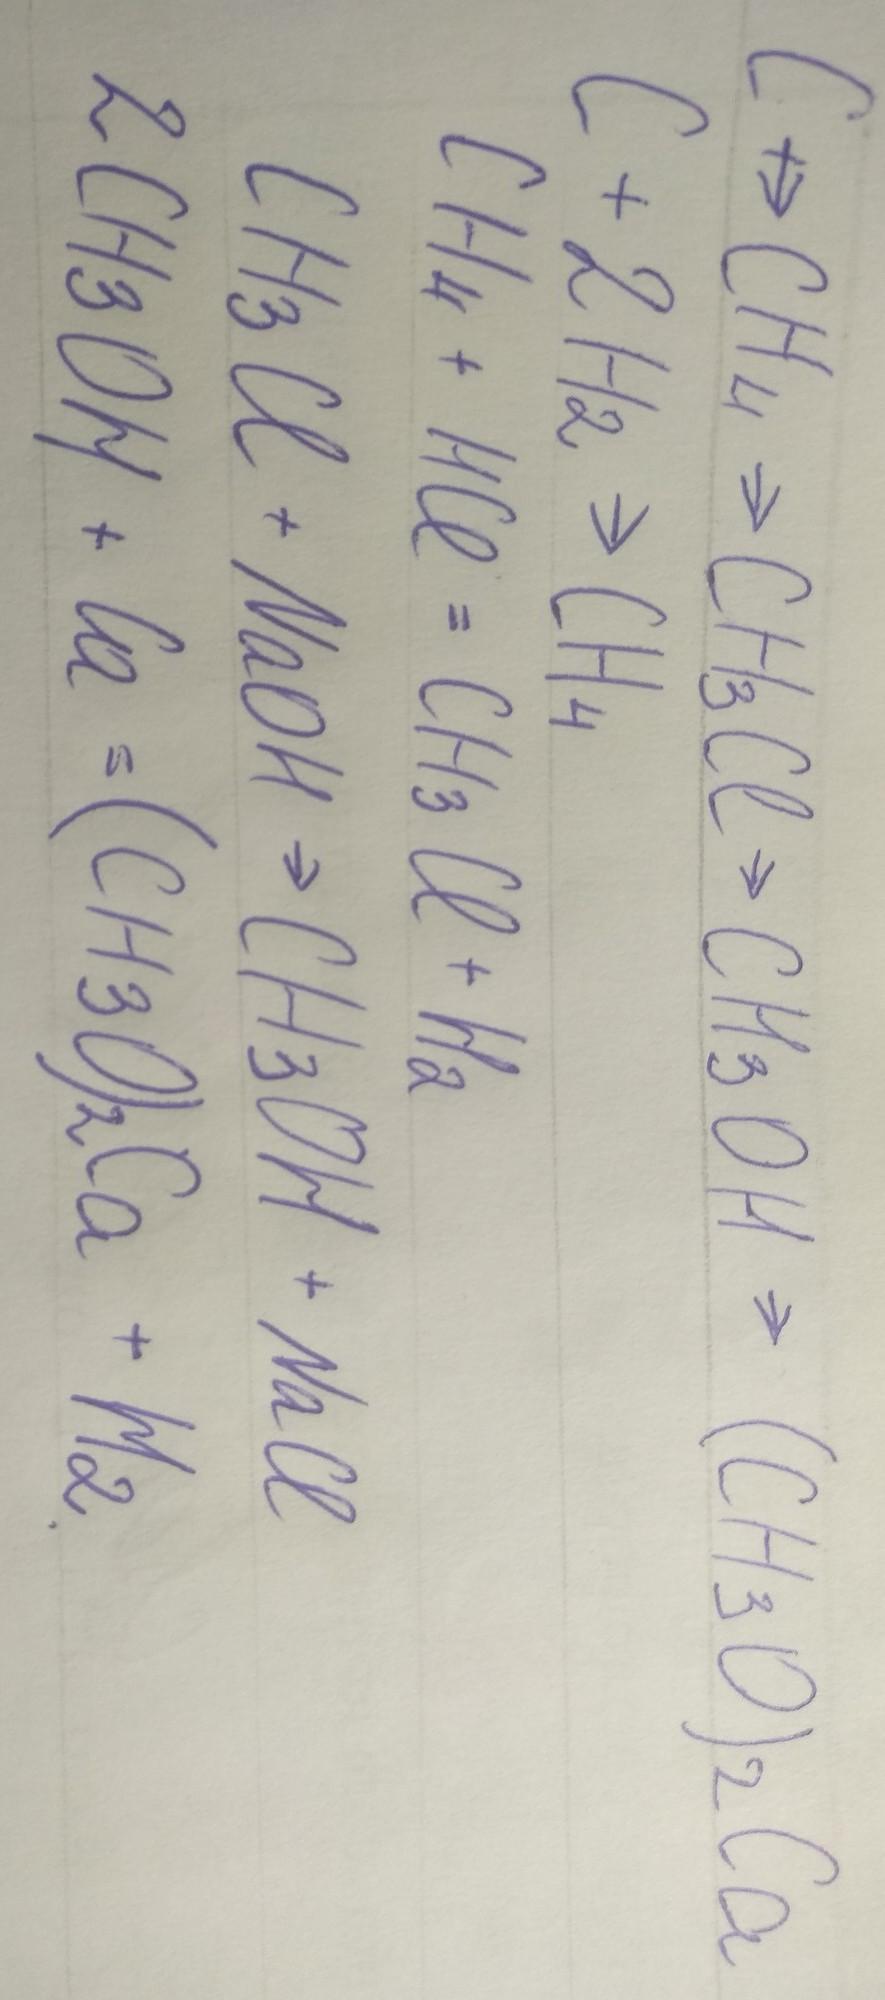 C → CH4 → CH3Cl → CH3OH → (CH3O)2Ca
C + 2H2 → CH4
CH4 + HCl = CH3Cl + H2
CH3Cl + NaOH → CH3OH + NaCl
2CH3OH + Ca = (CH3O)2Ca + H2